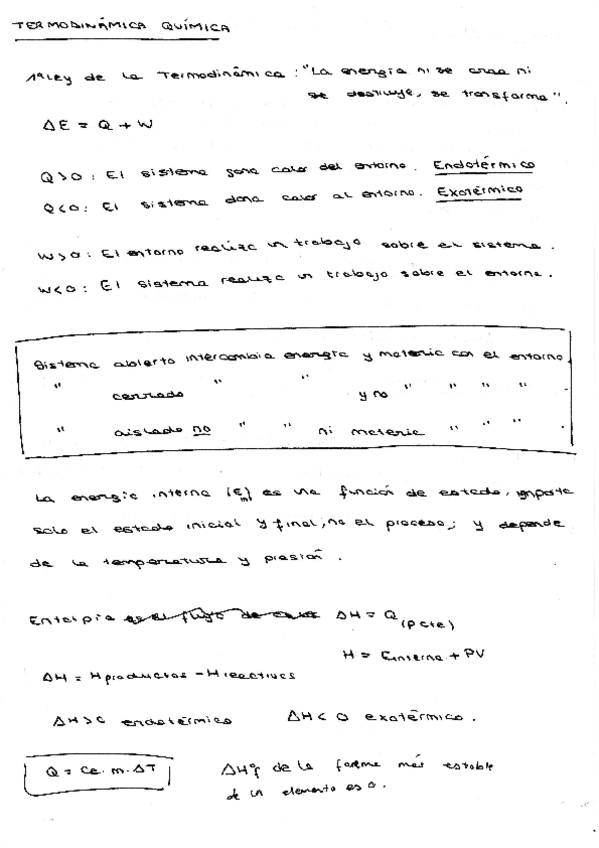 TERMODINÁMICA QUÍMICA
1ª Ley de la Termodinámica: "La energía ni se crea ni
se destruye, se transforma".
ΔE = Q + W
Q > 0: El sistema gana calor del entorno. Endotérmico
Q < 0: El sistema dona calor al entorno. Exotérmico
W > 0: El entorno realiza un trabajo sobre el sistema.
W < 0: El sistema realiza un trabajo sobre el entorno.
Sistema abierto intercambia energía y materia con el entorno.
" cerrado " " y no " " " " .
" aislado no " " ni materia " " " .
La energía interna (Ein) es una función de estado, importa
solo el estado inicial y final, no el proceso; y depende
de la temperatura y presión.
Entalpia es el flujo de calor ΔH = Q (P cte)
H = Einterna + PV
ΔH = Hproductos - Hreactivos
ΔH > 0 endotérmico ΔH < 0 exotérmico.
Q = Ce. m. ΔT
ΔHºf de la forma más estable
de un elemento es 0.